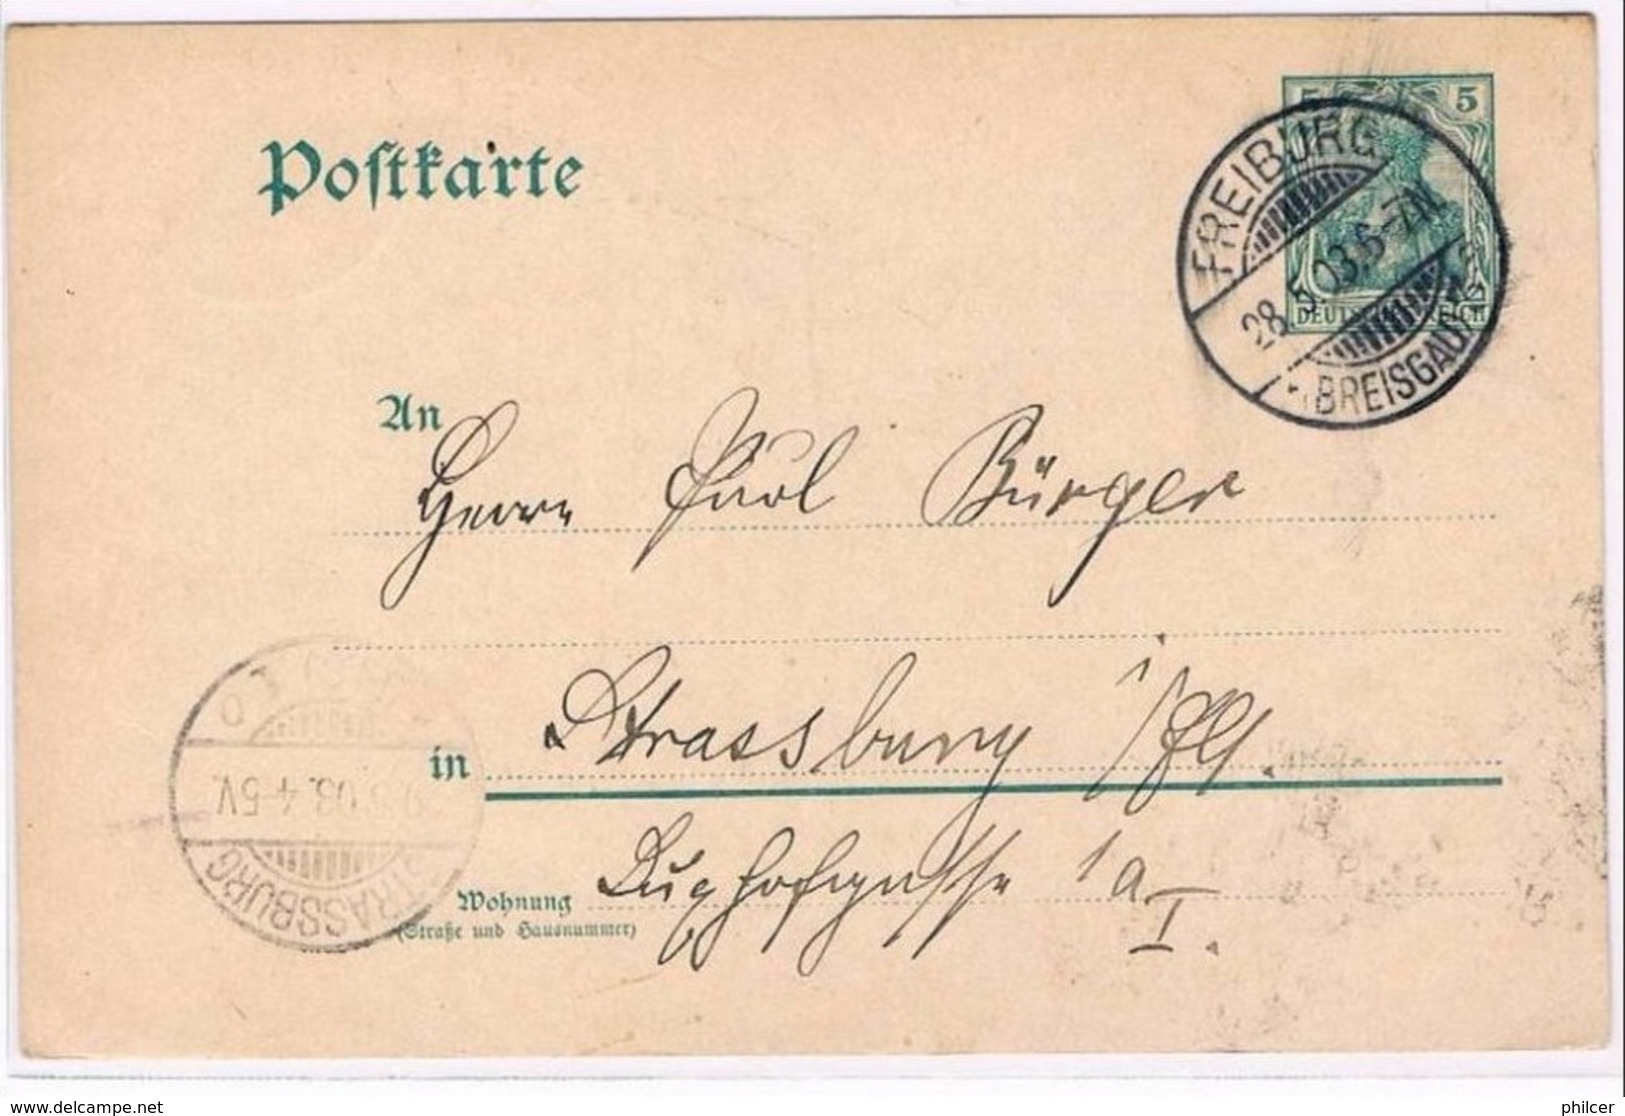 Postkarte
5 5
DEUTSCHES REICH
FREIBURG
28.5.03.6-7N
BREISGAU
An
Herrn Paul Bürger
in Strassburg i/Els.
STRASSBURG
.03.4-5V.
Wohnung 1a I.
(Straße und Hausnummer)
www.delcampe.net
philcer